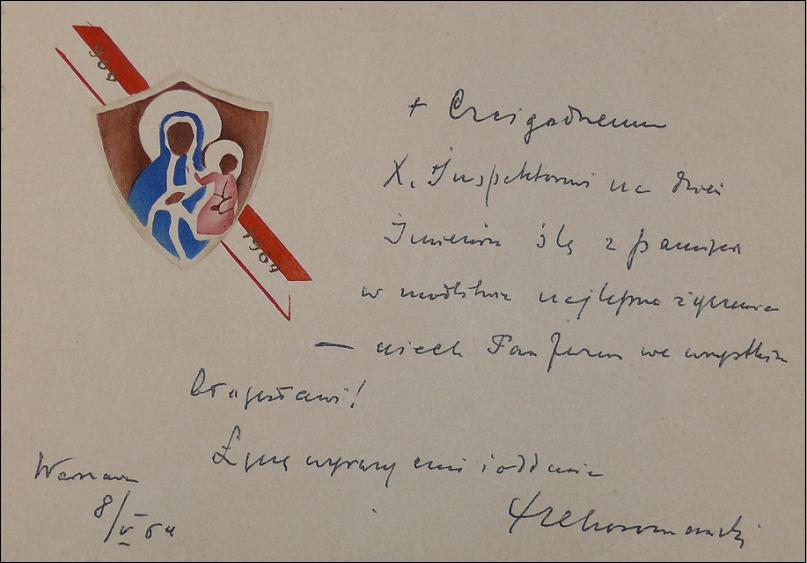 966
1964
+ Czcigodnemu
X. Inspektorowi na dzień
Imienin ślę z pamięcią
w modlitwie najlepsze życzenia
— niech Pan Jezus we wszystkim
błogosławi!
Łączę wyrazy czci i oddania
Warszawa
8/V 64